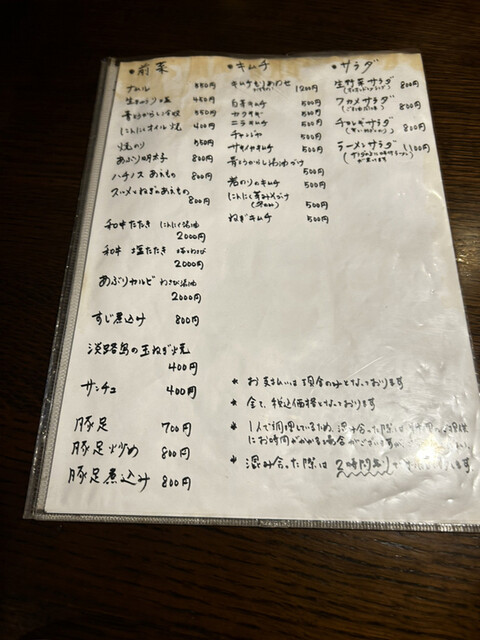 ●前菜
ナムル 550円
生きゅうり 450円
青とうがらし 550円
にんにくオイル焼 400円
焼のり 550円
あぶり明太子 800円
ハチノスあえもの 800円
スルメとねぎのあえもの
800円
和牛たたき にんにく醤油
2000円
和牛 塩たたき 塩わさび
2000円
あぶりカルビ わさび醤油
2000円
すじ煮込み 800円
淡路島の玉ねぎ焼
400円
サンチュ 400円
豚足 700円
豚足炒め 800円
豚足煮込み 800円
●キムチ
キムチもりあわせ 1200円
白菜キムチ 500円
カクテキ 500円
ニラキムチ 500円
チャンジャ 500円
サキイカキムチ 500円
青とうがらし醤油づけ
500円
岩のりのキムチ 500円
にんにく 500円
ねぎキムチ 500円
●サラダ
生野菜サラダ 800円
ワカメサラダ 800円
チョレギサラダ 800円
ラーメンサラダ 1100円
* お支払いは現金のみとなっております
* 全て税込価格となっております
* 1人で調理しているため、混み合った際はお料理の
にお時間がかかる場合がございます
* 混み合った際は2時間